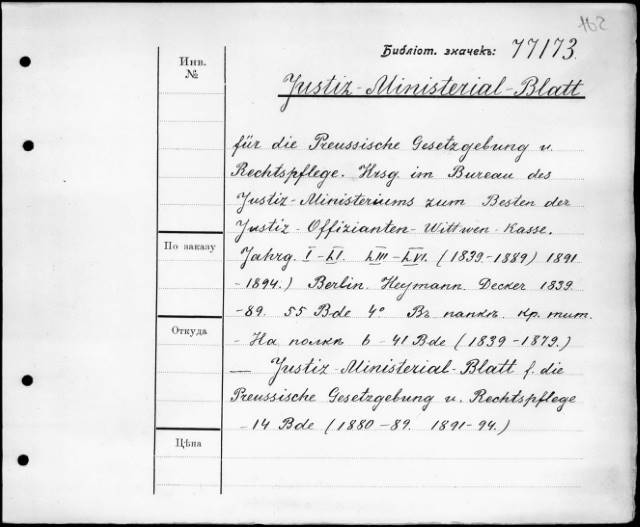 162
Библіот. значекъ: 77173.
Инв.
№
Justiz-Ministerial-Blatt
für die Preussische Gesetzgebung u.
Rechtspflege. Hrsg. im Bureau des
Justiz-Ministeriums zum Besten der
Justiz-Offizianten-Wittwen-Kasse.
По заказу
Jahrg. I-LI. LIII-LVI. (1839-1889) 1891
-1894.) Berlin. Heymann. Decker 1839
-89. 55 Bde 4° Въ папкѣ. кр. тит.
Откуда
- На полкѣ 6 - 41 Bde (1839-1879.)
— Justiz-Ministerial-Blatt f. die
Preussische Gesetzgebung u. Rechtspflege
-14 Bde (1880-89. 1891-94.)
Цѣна